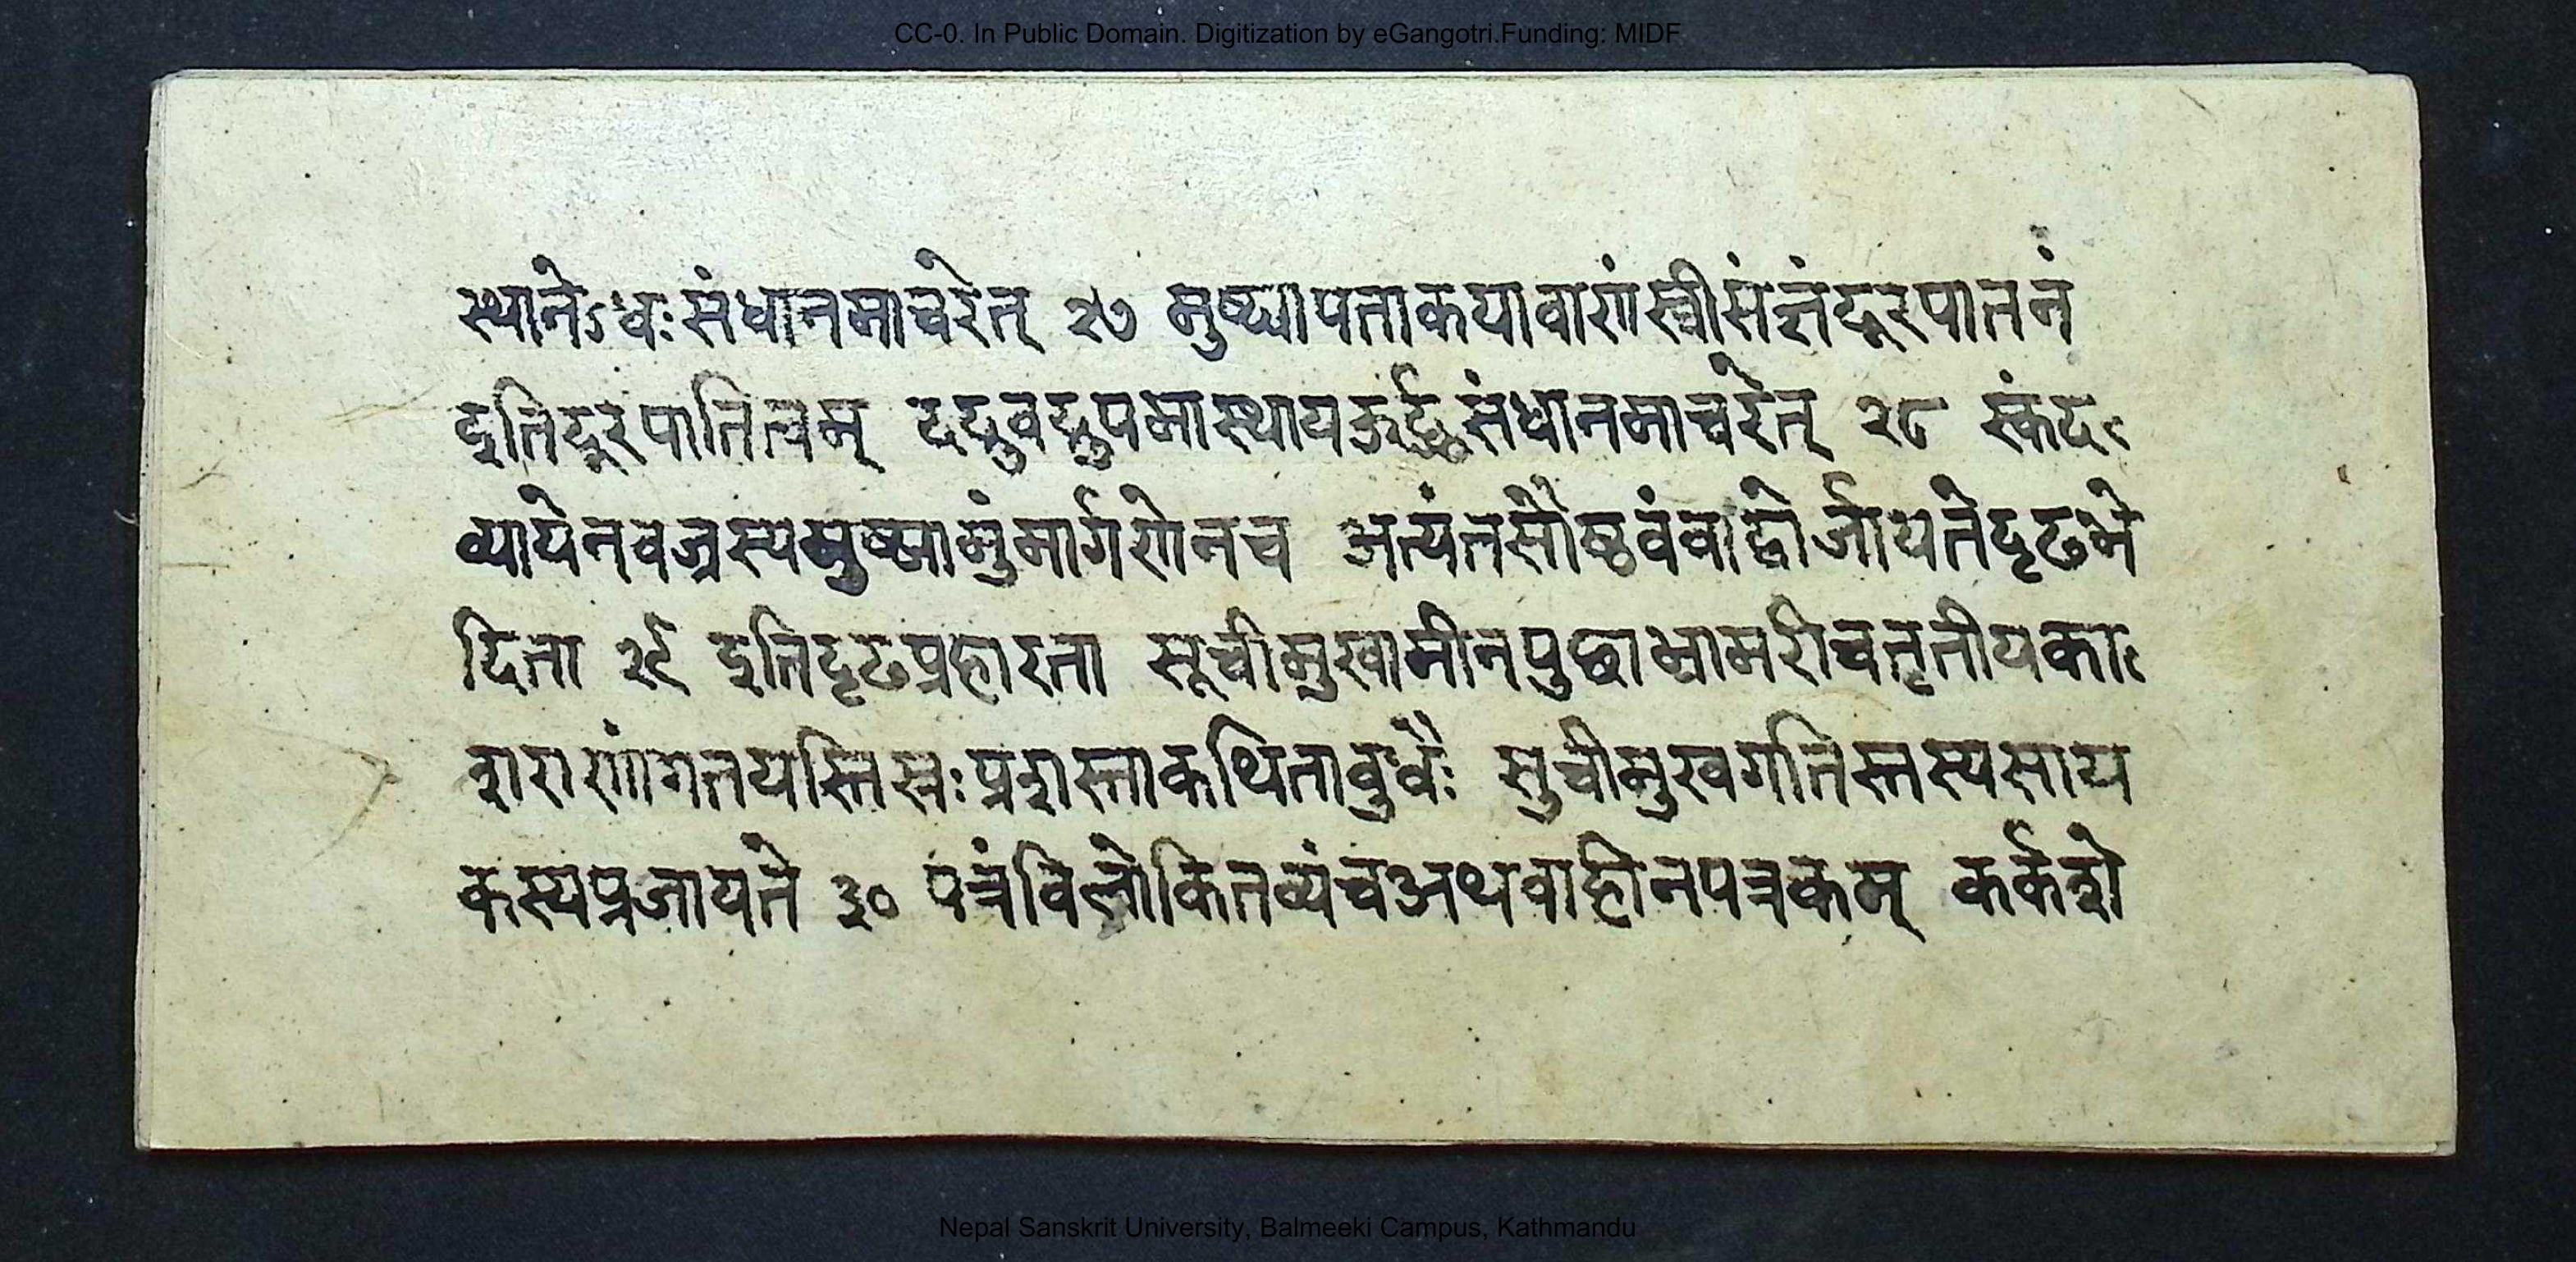 CC-0. In Public Domain. Digitization by eGangotri.Funding: MIDF
स्थानेऽधःसंधानमाचरेत् २७ मुष्ट्यापताकयावाणंस्त्रीसंज्ञंदूरपातनं
इतिदूरपातित्वम् दर्दुवद्रुपमास्थायऊर्द्ध्वसंधानमाचरेत् २८ स्कंद
व्यायेनवज्रस्यमुष्ट्यामुंमार्गणेनच अत्यंतसौष्ठवंवाह्वोर्जायतेदृढभे
दिता २९ इतिदृढप्रहारता सूचीमुखामीनपुछाभ्रामरीचतृतीयका
शराणांगतयस्तिस्रःप्रशस्ताकथितावुधैः सुचीमुखगतिस्तस्यसाय
कस्यप्रजायते ३० पत्रंविलोकितव्यंचअथवाहीनपत्रकम् कर्कशे
Nepal Sanskrit University, Balmeeki Campus, Kathmandu